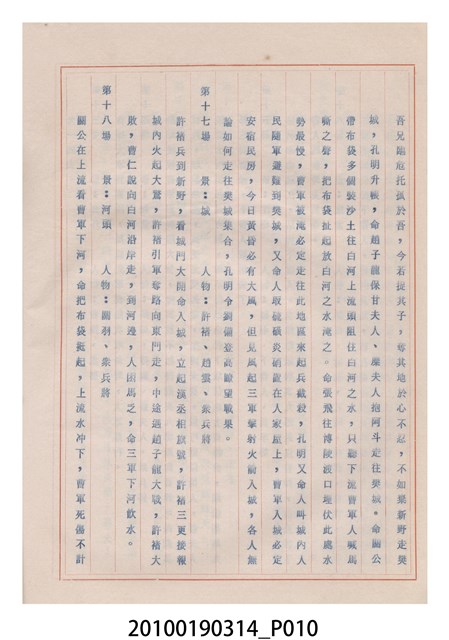 吾兄臨危托孤於吾，今若捉其子，奪其地於心不起，不如棄新野走樊
城，孔明升帳，命趙子龍保甘夫人、糜夫人抱阿斗走往樊城。命關公
帶布袋多個裝沙土住白河上流頭阻住白河之水，只聽下流曹軍人喊馬
嘶之聲，把布袋扯起放白河之水淹之。命張飛往博陵渡口埋伏此處水
勢最慢，曹軍被淹必定走往此地區來起兵截殺，孔明又命人叫城內人
民隨軍避難到樊城，又命人取硫磺炎硝置在人家屋上，曹軍入城必定
安宿民房，今日黃昏必有大風，但見風起三軍擊射火箭入城，各人無
論如何走往樊城集合，孔明令劉備登高瞭望戰果。
第十七場　景：城　人物：許褚、趙雲、眾兵將
許褚兵到新野，看城門大開命入城，立起漢丞相旗號，許褚三更接報
城內火起大驚，許褚引軍奪路向東門走，中途遇趙子龍大戰，許褚大
敗，曹仁說向白河沿岸走，到河邊，人困馬乏，命三軍下河飲水。
第十八場　景：河頭　人物：關羽、眾兵將
關公在上流看曹軍下河，命把布袋扯起，上流水冲下，曹軍死傷不計
20100190314_P010